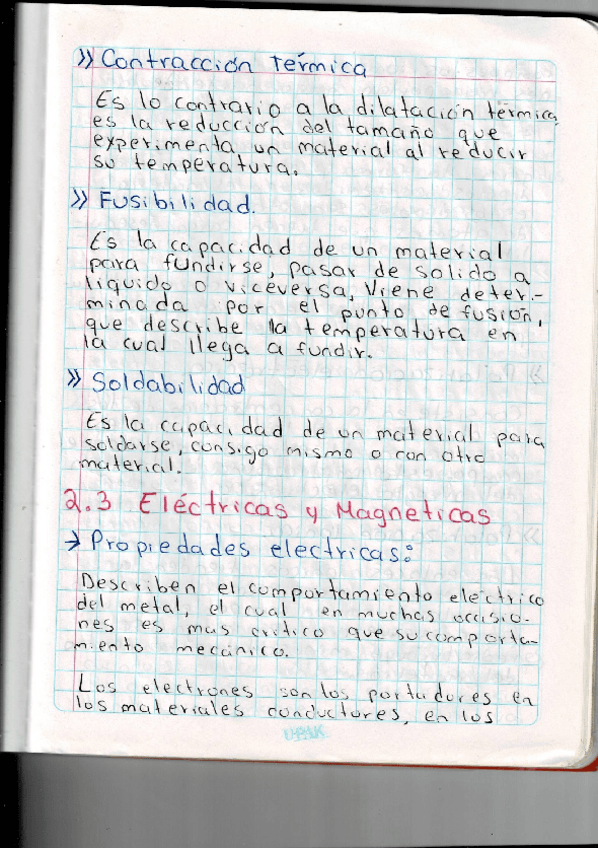 » Contracción térmica
Es lo contrario a la dilatación térmica,
es la reducción del tamaño que
experimenta un material al reducir
su temperatura.
» Fusibilidad.
Es la capacidad de un material
para fundirse, pasar de solido a
liquido o viceversa, Viene deter.-
minada por el punto de fusión,
que describe la temperatura en
la cual llega a fundir.
» Soldabilidad
Es la capacidad de un material para
soldarse, consigo mismo o con otro
material.
2.3 Eléctricas y Magneticas
→ Propiedades electricas:
Describen el comportamiento eléctrico
del metal, el cual en muchas occisio-
nes es mas critico que su comporta-
miento mecánico.
Los electrones son los portadores en
los materiales conductores, en los